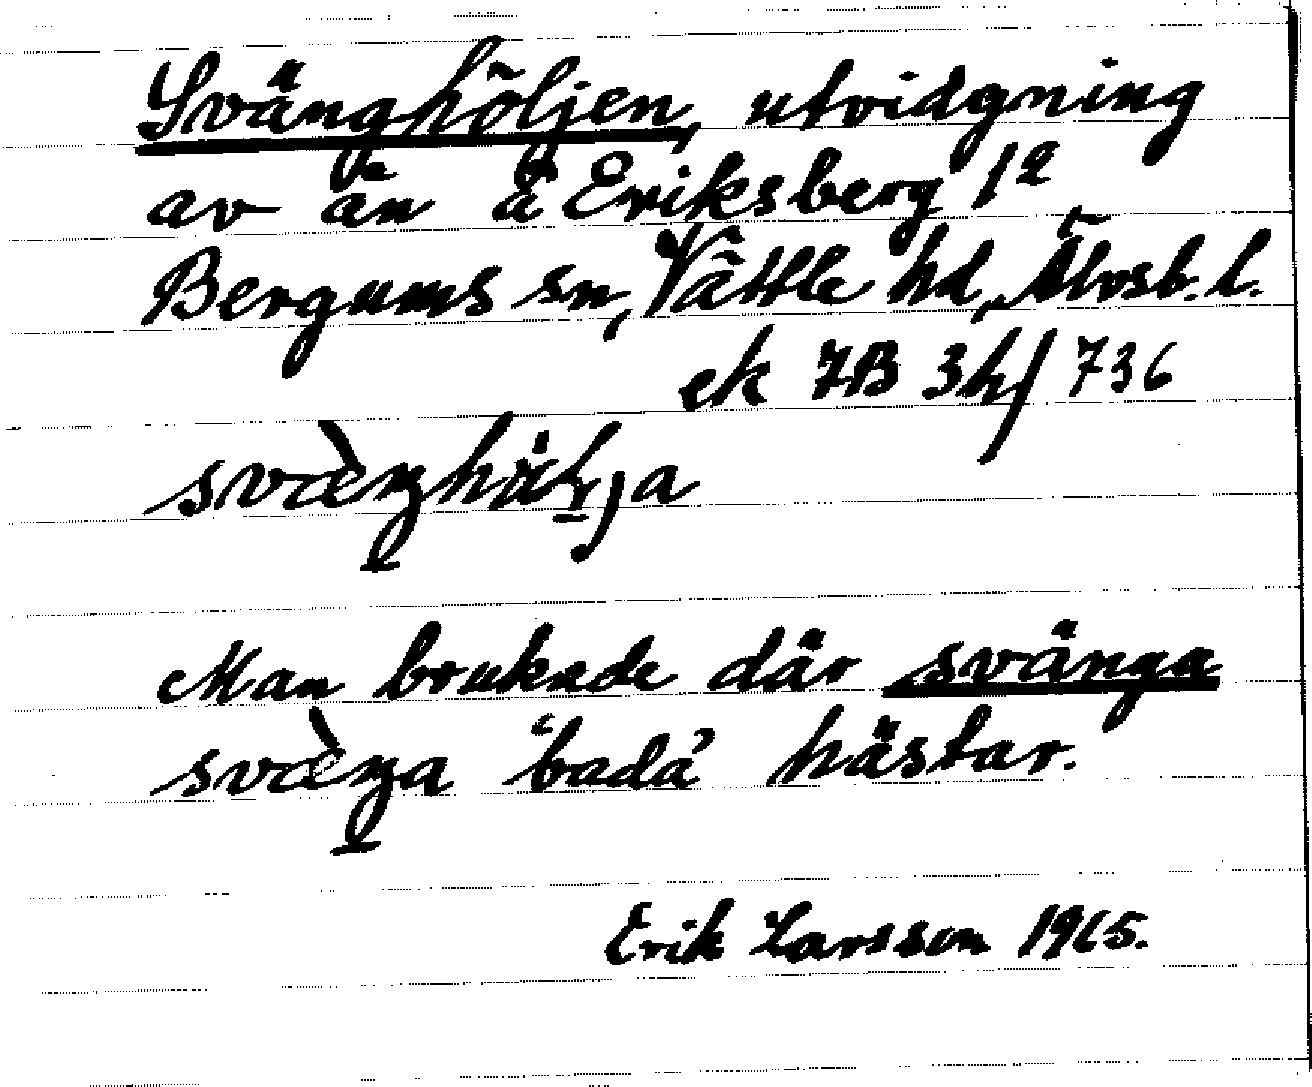 Svänghöljen, utvidgning
av ån å Eriksberg 12
Bergums sn, Vättle hd, Älvsb. l.
ek 7B 3h/736
svæ̀ŋhäḷja
Man brukade där svänga
svæ̀ŋa ‘bada’ hästar.
Erik Larsson 1965.